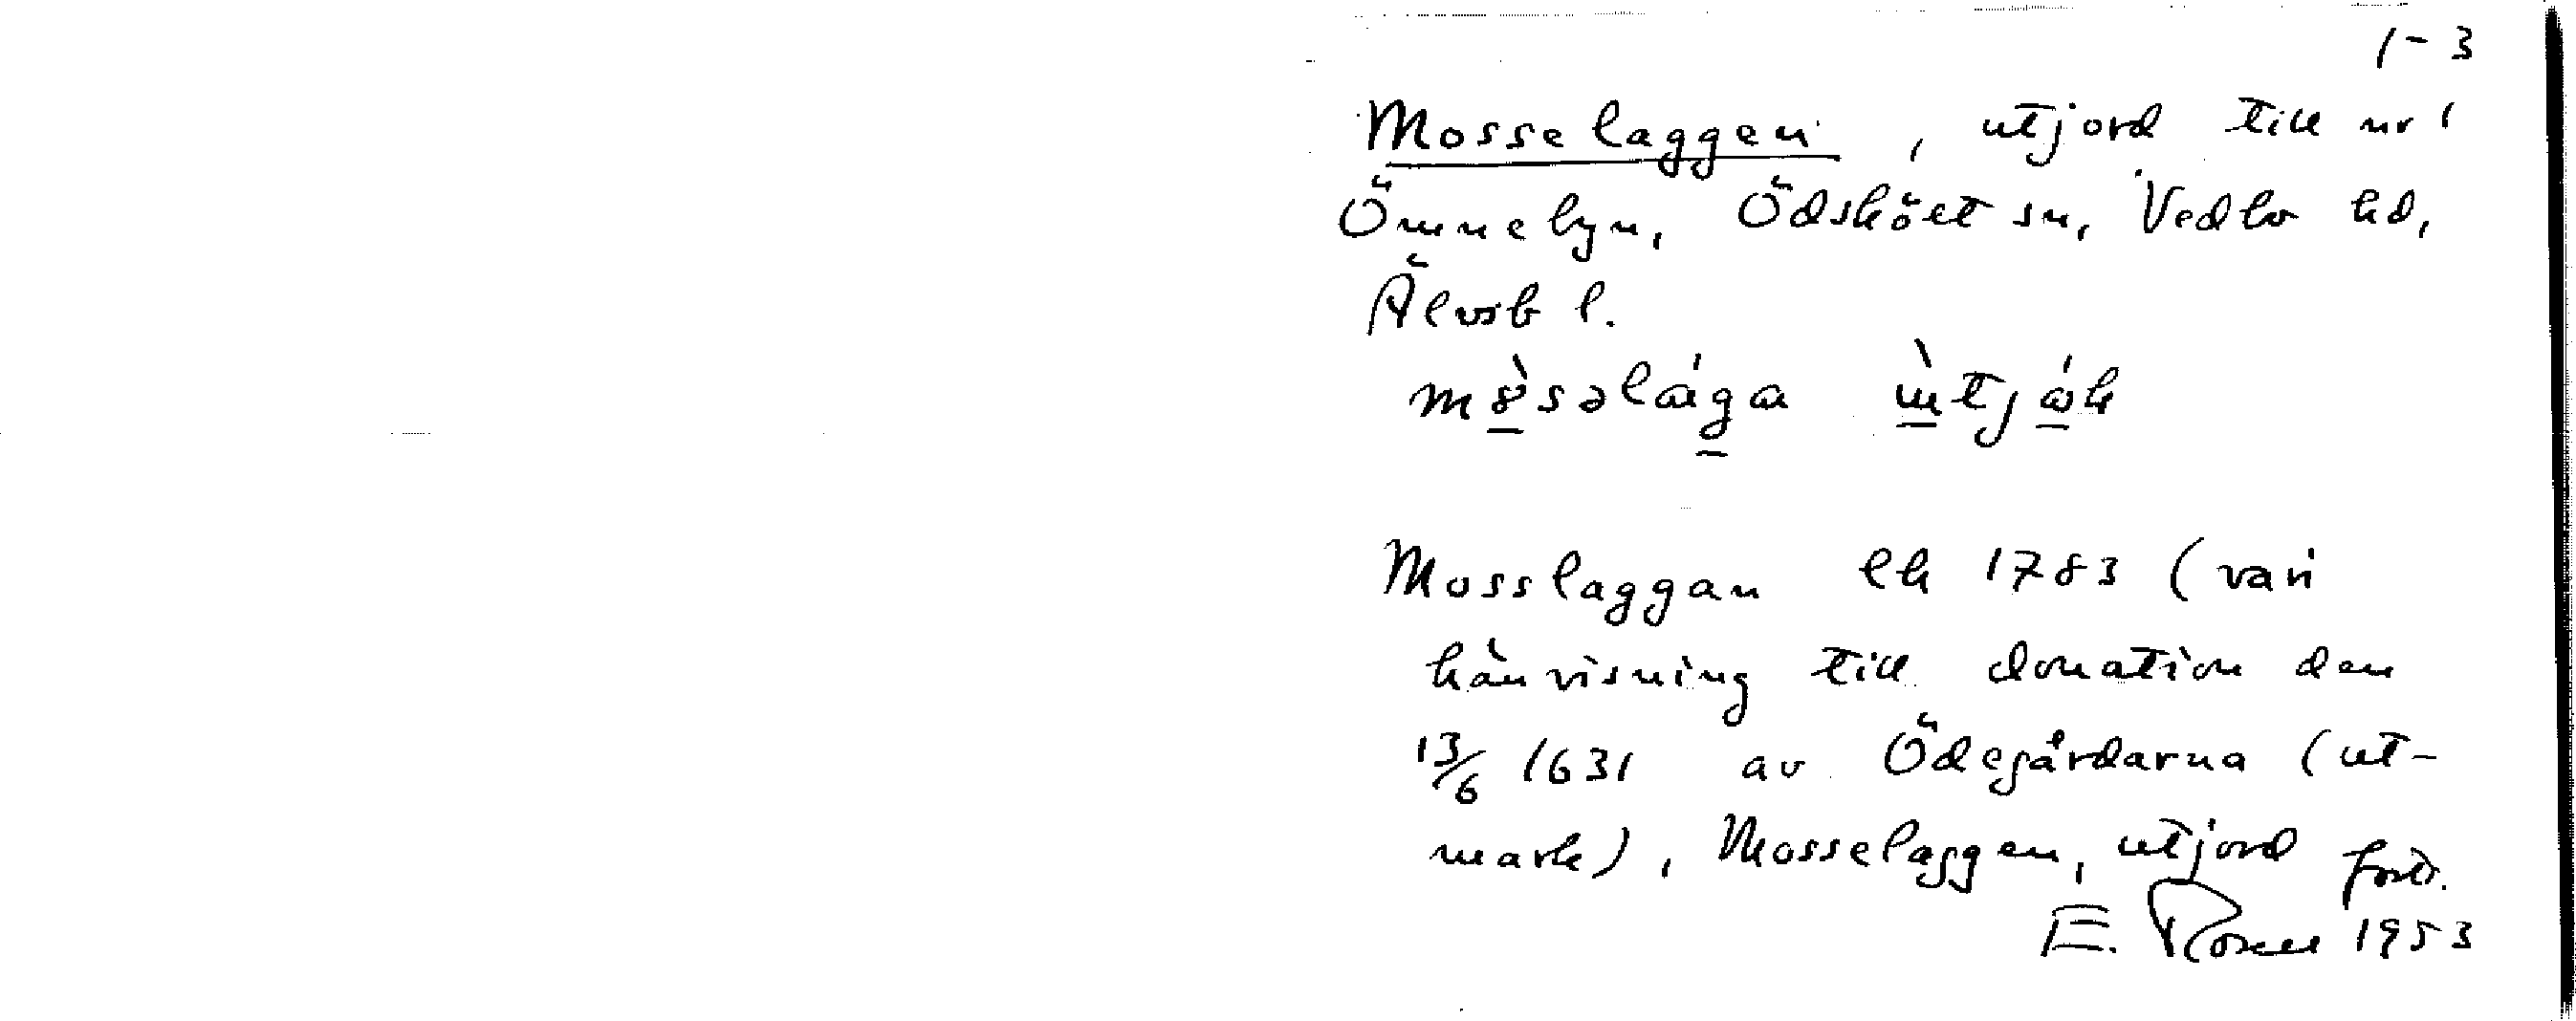 1-3
Mosselaggen, utjord till nr 1
Ömnebyn, Ödsköet sn, Vedbo hd,
Älvsb l.
Mosslaggan lh 1783 (vari
hänvisning till donation den
13/6 1631 av Ödegårdarna (ut-
mark), Mosselaggen, utjord forts.
E. Rosell 1953